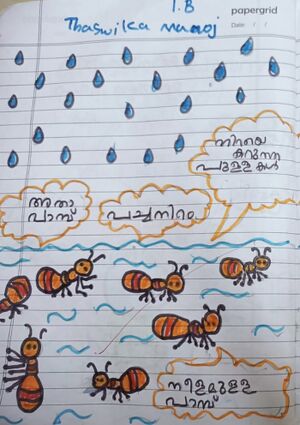 1.B
papergrid
Thaswika Manoj
Date: / /
നിറയെ
കറുത്ത
പുള്ളികൾ
അതാ
പാമ്പ്
പച്ചനിറം
നീളമുള്ള
പാമ്പ്